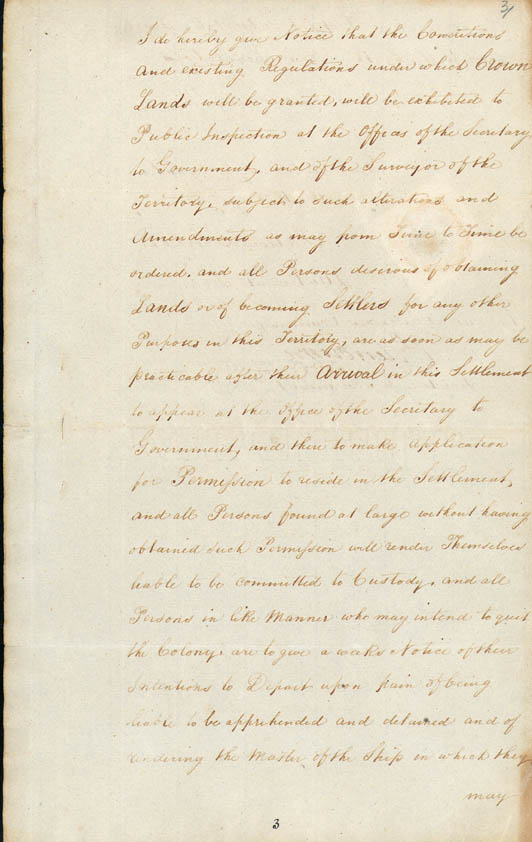 3/
I do hereby give Notice that the Conditions
and existing Regulations under which Crown
Lands will be granted, will be exhibited to
Public Inspection at the Offices of the Secretary
to Government, and of the Surveyor of the
Territory, subject to such alterations and
Amendments as may from Time to Time be
ordered, and all Persons desirous of obtaining
Lands or of becoming Settlers for any other
Purposes in this Territory, are as soon as may be
practicable after their Arrival in this Settlement
to appear at the Office of the Secretary to
Government, and there to make application
for Permission to reside in the Settlement,
and all Persons found at large without having
obtained such Permission will render Themselves
liable to be committed to Custody, and all
Persons in like Manner who may intend to quit
the Colony, are to give a weeks Notice of their
Intentions to Depart upon pain of being
liable to be apprehended and detained and of
rendering the Master of the Ship in which they
may
3